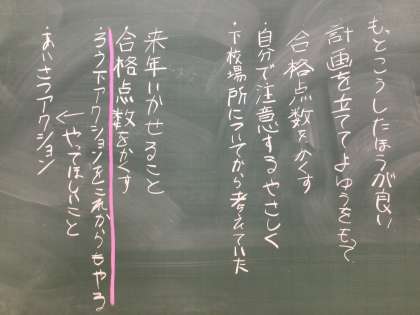 もっとこうしたほうが良い
計画を立ててよゆうをもって
合格点数をかくす
・自分で注意するやさしく
・下校場所についてから考えていた
来年いかせること
合格点数をかくす
・ろう下アクションをこれからもやる
←やってほしいこと
・あいさつアクション